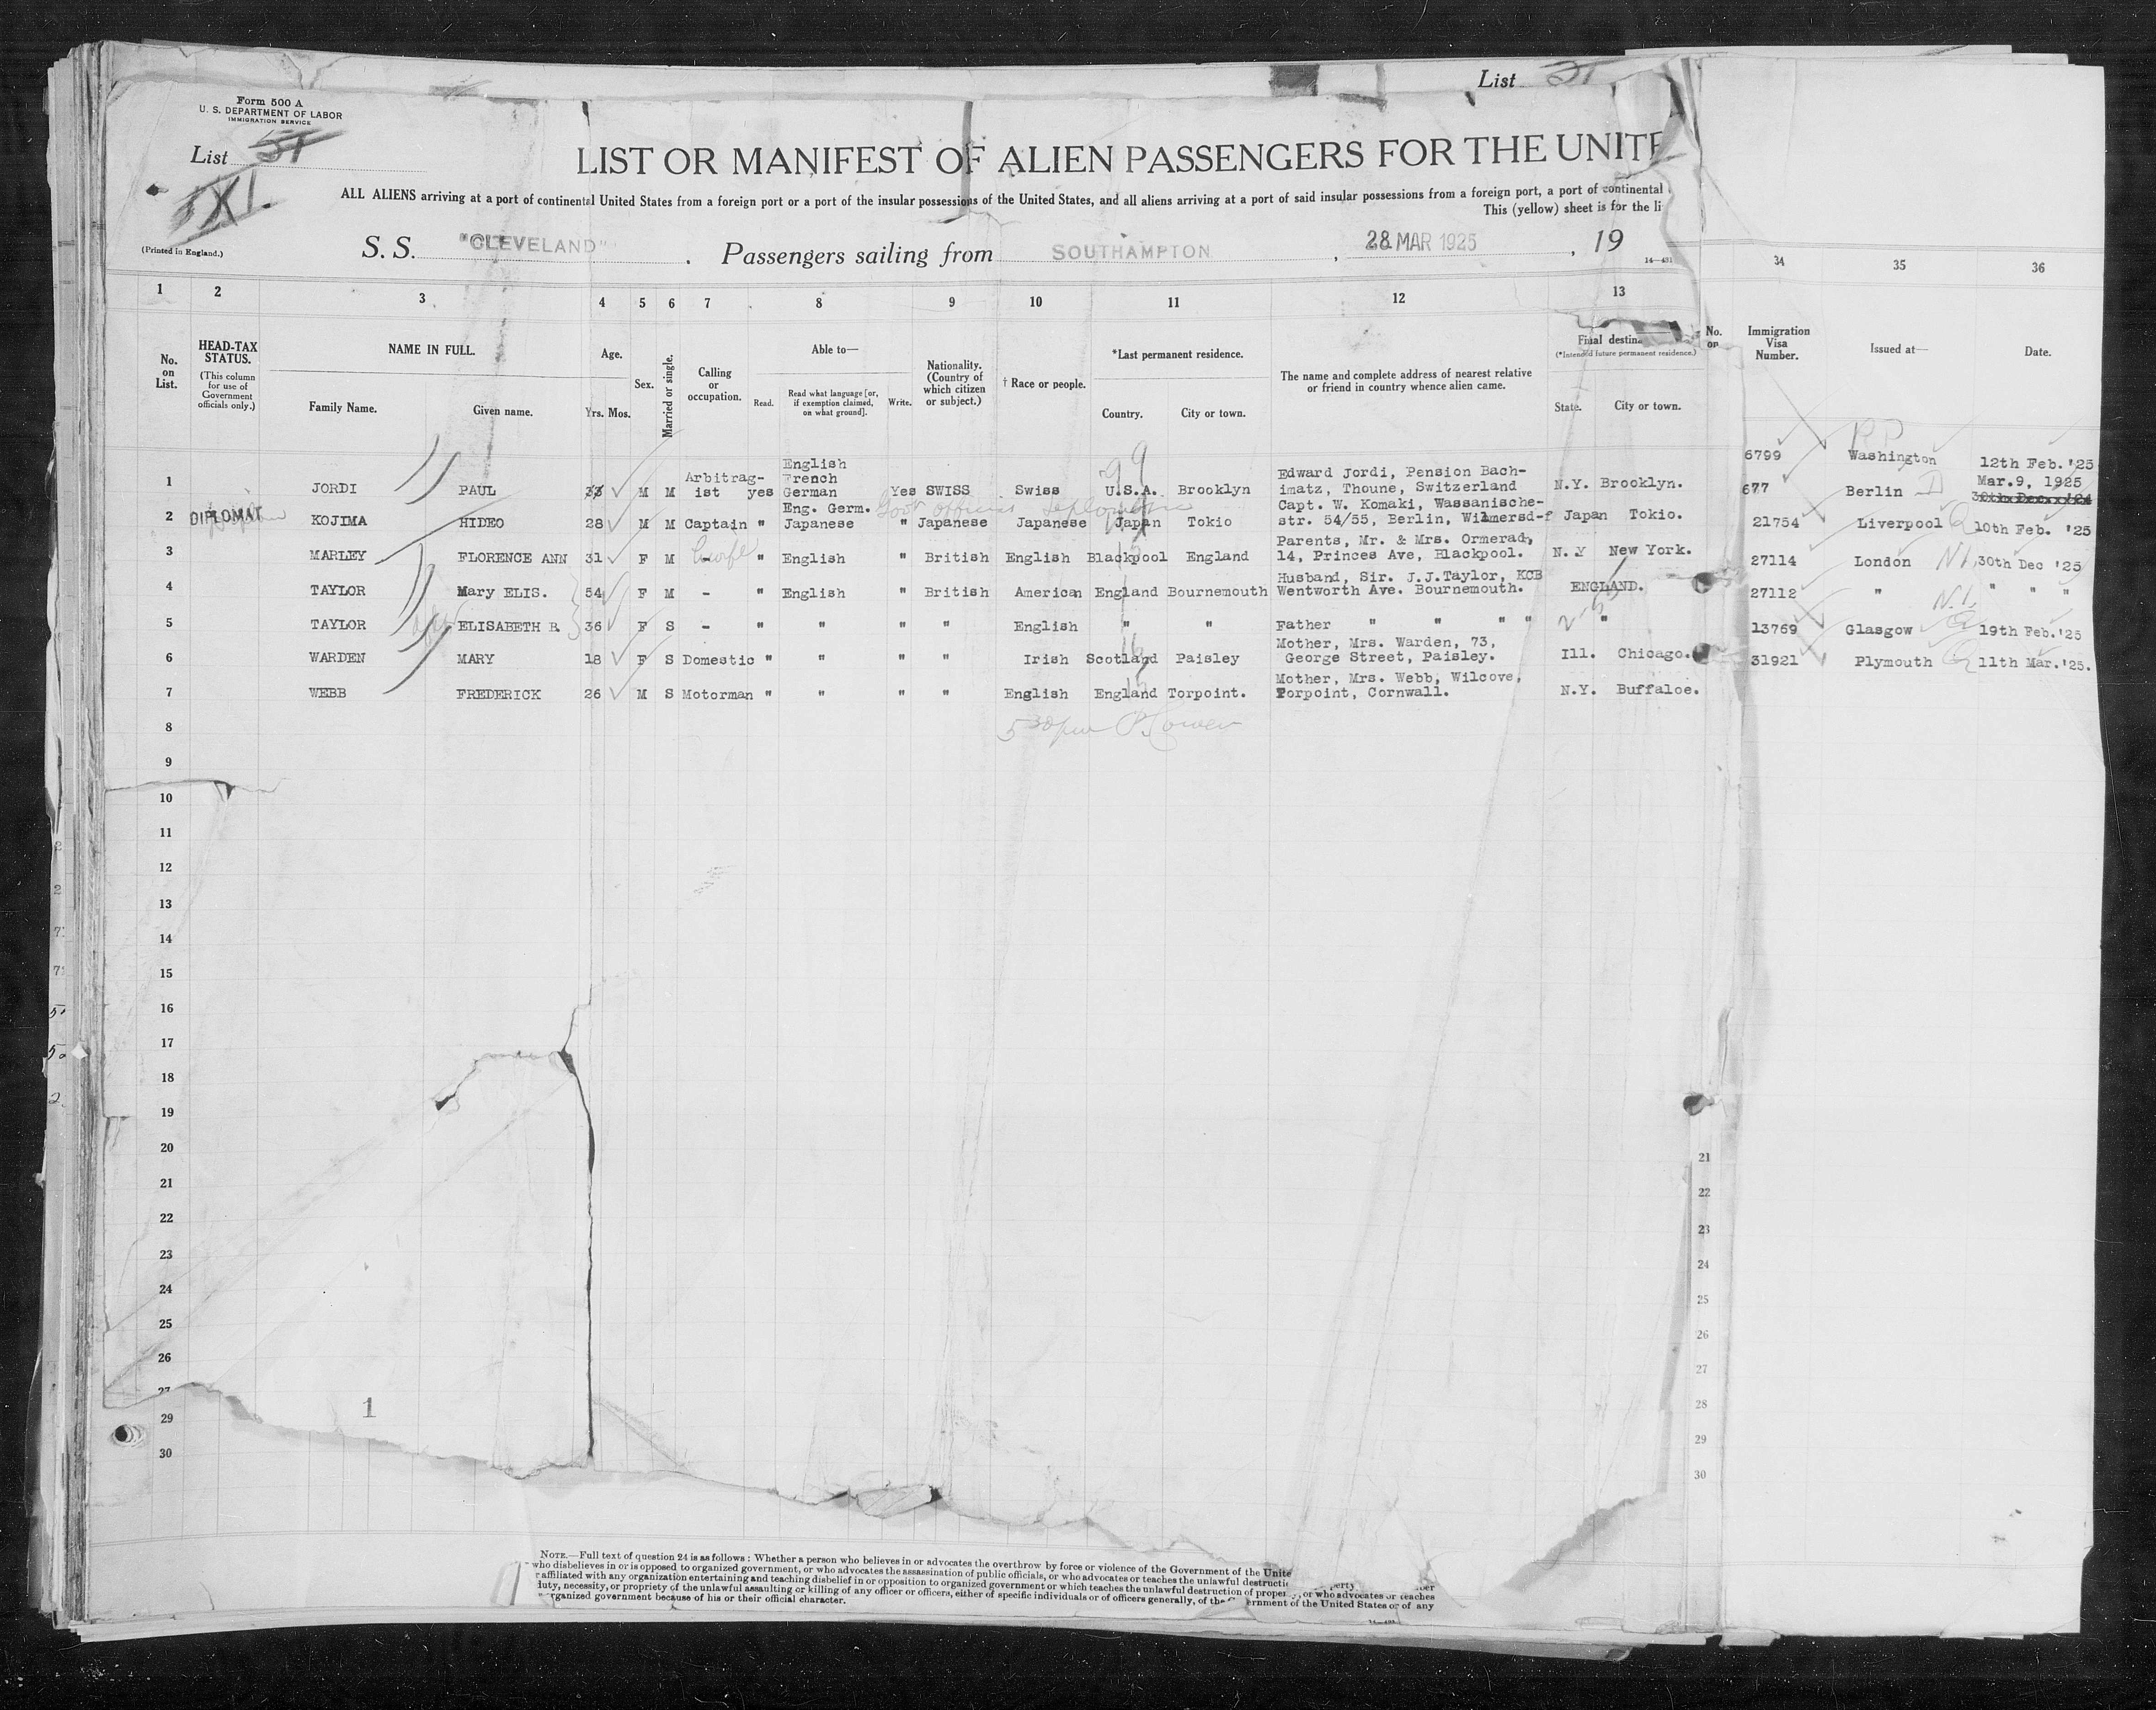 List 51
Form 500 A
U. S. DEPARTMENT OF LABOR
IMMIGRATION SERVICE
List 51
XI.
LIST OR MANIFEST OF ALIEN PASSENGERS FOR THE UNITE
ALL ALIENS arriving at a port of continental United States from a foreign port or a port of the insular possessions of the United States, and all aliens arriving at a port of said insular possessions from a foreign port, a port of continental
This (yellow) sheet is for the li
(Printed in England.)
S. S. "CLEVELAND" . Passengers sailing from SOUTHAMPTON , 28 MAR 1925 , 19
14—431
1 2 3 4 5 6 7 8 9 10 11 12 13 34 35 36
No. on List.
HEAD-TAX STATUS.
(This column for use of Government officials only.)
NAME IN FULL.
Family Name. Given name.
Age.
Yrs. Mos.
Sex.
Married or single.
Calling or occupation.
Able to—
Read. Read what language [or, if exemption claimed, on what ground]. Write.
Nationality. (Country of which citizen or subject.)
† Race or people.
*Last permanent residence.
Country. City or town.
The name and complete address of nearest relative or friend in country whence alien came.
Final destina
(*Intended future permanent residence.)
State. City or town.
No. on
Immigration Visa Number.
Issued at—
Date.
1 JORDI PAUL 33 M M Arbitrag-ist yes English French German Yes SWISS Swiss U.S.A. Brooklyn Edward Jordi, Pension Bach-imatz, Thoune, Switzerland N.Y. Brooklyn. 6799 Washington 12th Feb. '25
2 DIPLOMAT KOJIMA HIDEO 28 M M Captain " Eng. Germ. Japanese " Japanese Japanese Japan Tokio Capt. W. Komaki, Wassanische-str. 54/55, Berlin, Wilmersd-f Japan Tokio. 677 Berlin Mar.9, 1925 30th Dec. '24
3 MARLEY FLORENCE ANN 31 F M Wife " English " British English Blackpool England Parents, Mr. & Mrs. Ormerad, 14, Princes Ave, Blackpool. N.Y New York. 21754 Liverpool 10th Feb. '25
4 TAYLOR Mary ELIS. 54 F M - " English " British American England Bournemouth Husband, Sir. J.J.Taylor, KCB Wentworth Ave. Bournemouth. ENGLAND. 27114 London N.I. 30th Dec '25
5 TAYLOR ELISABETH B. 36 F S - " " " " English " " Father " " " " " 27112 " N.I. " " "
6 WARDEN MARY 18 F S Domestic " " " " Irish Scotland Paisley Mother, Mrs. Warden, 73, George Street, Paisley. Ill. Chicago. 13769 Glasgow 19th Feb.'25
7 WEBB FREDERICK 26 M S Motorman " " " " English England Torpoint. Mother, Mrs. Webb, Wilcove, Torpoint, Cornwall. N.Y. Buffaloe. 31921 Plymouth 11th Mar.'25.
8
9
10
11
12
13
14
15
16
17
18
19
20
21 21
22 22
23 23
24 24
25 25
26 26
27 27
28
29 29
30 30
1
NOTE.—Full text of question 24 is as follows : Whether a person who believes in or advocates the overthrow by force or violence of the Government of the Unite
who disbelieves in or is opposed to organized government, or who advocates the assassination of public officials, or who advocates or teaches the unlawful destructi
affiliated with any organization entertaining and teaching disbelief in or opposition to organized government or which teaches the unlawful destruction of proper , or who advocates or teaches
duty, necessity, or propriety of the unlawful assaulting or killing of any officer or officers, either of specific individuals or of officers generally, of the ernment of the United States or of any
rganized government because of his or their official character.